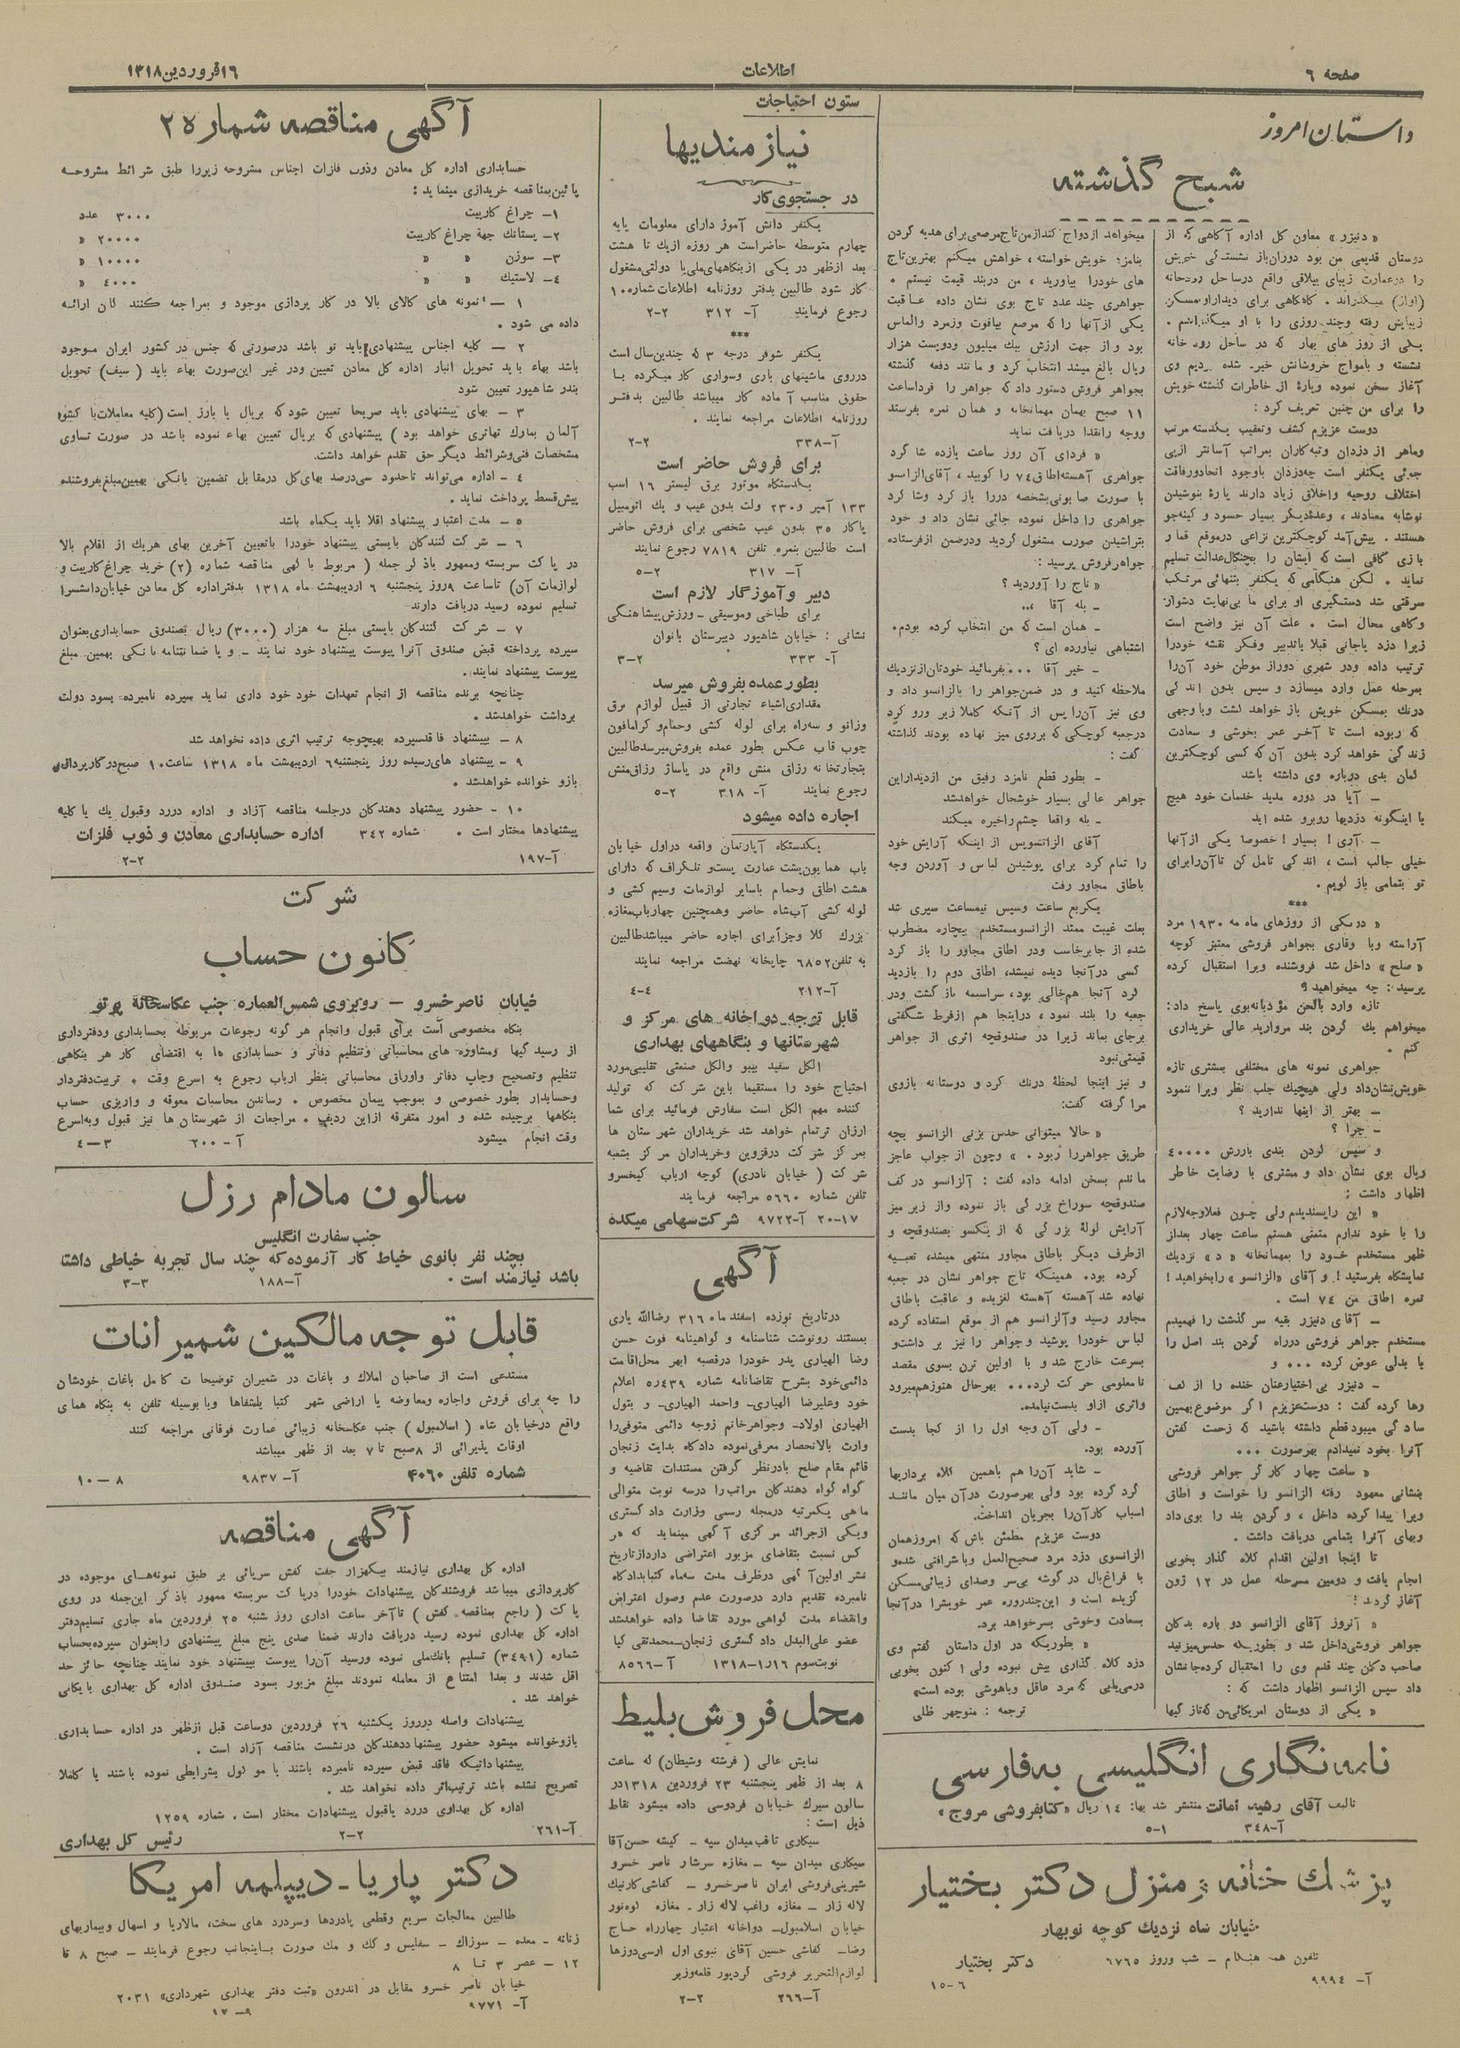 صفحه ٦
اطلاعات
١٦فروردین١٣١٨
داستان امروز
شبح گذشته
« دنیزر » معاون کل اداره آگاهی که از
دوستان قدیمی من بود دوران باز نشستگی خویش
را درعمارت زیبای ییلاقی واقع درساحل رودخانه
(اواز) میگذراند . گاه گاهی برای دیدار او بمسکن
زیبایش رفته وچند روزی را با او میگذراندم .
یکی از روز های بهار که در ساحل رود خانه
نشسته و بامواج خروشانش خیره شده بودیم وی
آغاز سخن نموده وپارهٔ از خاطرات گذشته خویش
را برای من چنین تعریف کرد :
دوست عزیزم کشف وتعقیب یکدسته مرتب
وماهر از دزدان وتبه کاران بمراتب آسانتر از پی
جوئی یکنفر است چه دزدان باوجود اتحاد ورفاقت
اختلاف روحیه و اخلاق زیاد دارند پارهٔ بنوشیدن
نوشابه معتادند ، وعدهٔ دیگر بسیار حسود و کینه جو
هستند . پیش آمد کوچکترین نزاعی درموقع قمار و
بازی کافی است که ایشان را بچنگال عدالت تسلیم
نماید . لکن هنگامی که یکنفر بتنهائی مرتکب
سرقتی شد دستگیری او برای ما بی نهایت دشوار
وگاهی محال است . علت آن نیز واضح است
زیرا دزد یاجانی قبلا باتدبیر وفکر نقشه خودرا
ترتیب داده ودر شهری دوراز موطن خود آن را
بمرحله عمل وارد میسازد و سپس بدون اندکی
درنگ بمسکن خویش باز خواهد گشت وباوجهی
که ربوده است تا آخر عمر بخوشی و سعادت
زندگی خواهد کرد بدون آن که کسی کوچکترین
گمان بدی درباره وی داشته باشد
ــ آیا در دوره مدید خدمات خود هیچ
با اینگونه دزدیها روبرو شده اید
ــ آری ! بسیار ! خصوصا یکی از آنها
خیلی جالب است ، اندکی تامل کن تا آن را برای
تو بتمامی باز گویم .
***
« در یکی از روزهای ماه مه ١٩٣٠ مرد
آراسته وبا وقاری بجواهر فروشی معتبر کوچه
« صلح » داخل شد فروشنده ویرا استقبال کرده
پرسید : چه میخواهید ؟
تازه وارد بالحن مؤدبانه‌ای پاسخ داد :
میخواهم یك گردن بند مروارید عالی خریداری
کنم .
جواهری نمونه های مختلفی بمشتری تازه
خویش نشان داد ولی هیچیك جلب نظر ویرا ننمود
ــ بهتر از اینها ندارید ؟
ــ چرا ؟
و سپس گردن بندی بارزش ٤٠٠٠٠
ریال بوی نشان داد و مشتری با رضایت خاطر
اظهار داشت :
« این را پسندیدم ولی چون فعلا وجه لازم
را با خود ندارم متمنی هستم ساعت چهار بعداز
ظهر مستخدم خود را بمهمانخانه « د » نزدیك
نمایشگاه بفرستید ! و آقای « الزانسو » رابخواهید !
نمره اطاق من ٧٤ است .
ــ آقای دنیزر بقیه سر گذشت را فهمیدم
مستخدم جواهر فروشی درراه گردن بند اصل را
با بدلی عوض کرده ... و
ــ دنیزر بی اختیار عنان خنده را از کف
رها کرده گفت : دوست عزیزم اگر موضوع بهمین
سادگی میبود قطع داشته باشید که زحمت گفتن
آنرا بخود نمیدادم بهرصورت ...
« ساعت چهار کارگر جواهر فروشی
بنشانی معهود رفته الزانسو را خواست و اطاق
ویرا پیدا کرده داخل ، و گردن بند را بوی داد
وبهای آنرا بتمامی دریافت داشت .
تا اینجا اولین اقدام کلاه گذار بخوبی
انجام یافت و دومین مرحله عمل در ١٢ ژون
آغاز گردید !
« آنروز آقای الزانسو دو باره بدکان
جواهر فروشی داخل شد و بطوریکه حدس میزنید
صاحب دکان چند قدم وی را استقبال کرده جا نشان
داد سپس الزانسو اظهار داشت که :
« یکی از دوستان امریکائی من که تازگیها
میخواهد ازدواج کند از من تاج مرصعی برای هدیه کردن
بنامزد خویش خواسته ، خواهش میکنم بهترین تاج
های خودرا بیاورید ، من دربند قیمت نیستم .
جواهری چند عدد تاج بوی نشان داده عاقبت
یکی از آنها را که مرصع بیاقوت وزمرد والماس
بود و از جهت ارزش بیك میلیون ودویست هزار
ریال بالغ میشد انتخاب کرد و مانند دفعه گذشته
بجواهر فروش دستور داد که جواهر را فرداساعت
١١ صبح بهمان مهمانخانه و همان نمره بفرستد
ووجه را نقدا دریافت نماید
« فردای آن روز ساعت یازده شاگرد
جواهری آهسته اطاق ٧٤ را کوبید ، آقای الزانسو
با صورت صابونی بشخصه دررا باز کرد وشاگرد
جواهری را داخل نموده جائی نشان داد و خود
بتراشیدن صورت مشغول گردید ودرضمن از فرستاده
جواهر فروش پرسید :
« تاج را آوردید ؟
ــ بله آقا ...
ــ همان است که من انتخاب کرده بودم .
اشتباهی نیاورده ای ؟
ــ خیر آقا ... بفرمائید خودتان ازنزدیك
ملاحظه کنید و در ضمن جواهر را بالزانسو داد و
وی نیز آن را پس از آنکه کاملا زیر ورو کرد
درجعبه کوچکی که برروی میز نهاده بودند گذاشته
گفت :
ــ بطور قطع نامزد رفیق من ازدیداراین
جواهر عالی بسیار خوشحال خواهد شد
ــ بله واقعا چشم راخیره میکند
آقای الزانسو پس از اینکه آرایش خود
را تمام کرد برای پوشیدن لباس و آوردن وجه
باطاق مجاور رفت
یکربع ساعت وسپس نیمساعت سپری شد
بعلت غیبت ممتد الزانسو مستخدم بیچاره مضطرب
شده از جا برخاست ودر اطاق مجاور را باز کرد
کسی در آنجا دیده نمیشد، اطاق دوم را بازدید
کرد آنجا هم خالی بود ، سراسیمه باز گشت ودر
جعبه را بلند نمود ، دراینجا هم ازفرط شگفتی
برجای بماند زیرا در صندوقچه اثری از جواهر
قیمتی نبود
و نیز اینجا لحظهٔ درنگ کرد و دوستانه بازوی
مرا گرفته گفت:
« حالا میتوانی حدس بزنی الزانسو بچه
طریق جواهر را ربود . » وچون از جواب عاجز
ماندم بسخن ادامه داده گفت : آلزانسو در کف
صندوقچه سوراخ بزرگی باز نموده واز زیر میز
آرایش لولهٔ بزرگی که از یکسو بصندوقچه و
ازطرف دیگر باطاق مجاور منتهی میشد ، تعبیه
کرده بود. همینکه تاج جواهر نشان در جعبه
نهاده شد آهسته آهسته لغزیده و عاقبت باطاق
مجاور رسید و آلزانسو هم از موقع استفاده کرده
لباس خودرا پوشید وجواهر را نیز بر داشت و
بسرعت خارج شد و با اولین ترن بسوی مقصد
نامعلومی حرکت کرد... بهرحال هنوزهم میرود
واثری از او بدست نیامده.
ــ ولی آن وجه اول را از کجا بدست
آورده بود .
ــ شاید آن را هم باهمین کلاه برداریها
گرد کرده بود ولی بهرصورت در آن میان مانند
اسباب کار آن را بجریان انداخت.
دوست عزیزم مطمئن باش که امروز همان
الزانسوی دزد مرد صحیح العمل وباشرافتی شده و
با فراغ بال در گوشه بی سر وصدای زیبائی مسکن
گزیده است و این چند روزه عمر خویش را در آنجا
بسعادت وخوشی بسر خواهد برد.
« بطوریکه در اول داستان گفتم وی
دزد کلاه گذاری بیش نبوده ولی اکنون بخوبی
درمی یابی که مرد عاقل وباهوشی بوده است»
ترجمه : منوچهر ظلی
نامه نگاری انگلیسی به فارسی
تالیف آقای رشید امانت منتشر شد بها: ١٤ ریال « کتابفروشی مروج »
آ-٣٤٨ ١-٥
پزشك خانه و منزل دکتر بختیار
خیابان شاه نزدیك کوچه نوبهار
تلفون همه هنگام ــ شب وروز ٦٧٦٥ دکتر بختیار
آ- ٩٩٩٤ ٦-١٥
ستون احتیاجات
نیازمندیها
در جستجوی کار
یکنفر دانش آموز دارای معلومات پایه
چهارم متوسطه حاضر است هر روزه از یك تا هشت
بعد ازظهر در یکی از بنگاههای ملی یا دولتی مشغول
کار شود طالبین بدفتر روزنامه اطلاعات شماره ١٠٠
رجوع فرمایند آ- ٣١٢ ٢-٢
***
یکنفر شوفر درجه ٣ که چندین سال است
در روی ماشینهای باری وسواری کار میکرده با
حقوق مناسب آماده کار میباشد طالبین بدفتر
روزنامه اطلاعات مراجعه نمایند .
آ-٣٣٨ ٢-٢
برای فروش حاضر است
یکدستگاه موتور برق لیستر ١٦ اسب
١٣٣ آمپر و ٢٣٠ ولت بدون عیب و یك اتومبیل
پاکار ٣٥ بدون عیب شخصی برای فروش حاضر
است طالبین بنمره تلفن ٧٨١٩ رجوع نمایند
آ- ٣١٧ ٢-٥
دبیر و آموزگار لازم است
برای طباخی وموسیقی ــ ورزش پیشاهنگی
نشانی : خیابان شاهپور دبیرستان بانوان
آ- ٣٣٣ ٢-٣
بطور عمده بفروش میرسد
مقداری اشیاء تجارتی از قبیل لوازم برق
وزانو و سه راه برای لوله کشی وحمام و گرامافون
چوب قاب عکس بطور عمده بفروش میرسد طالبین
بتجارتخانه رزاق منش واقع در پاساژ رزاق منش
رجوع نمایند آ- ٣١٨ ٢-٥
اجاره داده میشود
یکدستگاه آپارتمان واقعه دراول خیابان
باب همایون پشت عمارت پست و تلگراف که دارای
هشت اطاق وحمام باسایر لوازمات وسیم کشی و
لوله کشی آب شاه حاضر وهمچنین چهارباب مغازه
بزرگ کلا وجزأ برای اجاره حاضر میباشد طالبین
به تلفن ٦٨٥٢ چاپخانه نهضت مراجعه نمایند
آ-٢١٢ ٤-٤
قابل توجه دواخانه های مرکز و
شهرستانها و بنگاههای بهداری
الکل سفید بیبو والکل صنعتی تقلیبی مورد
احتیاج خود را مستقیما باین شرکت که تولید
کننده مهم الکل است سفارش فرمائید برای شما
ارزان تر تمام خواهد شد خریداران شهرستان ها
بمرکز شرکت در قزوین وخریداران مرکز بشعبه
شرکت ( خیابان نادری) کوچه ارباب کیخسرو
تلفن شماره ٥٦٦٠ مراجعه فرمایند
١٧-٢٠ آ-٩٧٢٢ شرکت سهامی میکده
آگهی
درتاریخ نوزده اسفند ماه ٣١٦ رضاالله یاری
بمستند رونوشت شناسنامه و گواهینامه فوت حسن
رضا الهیاری پدر خودرا درقصبه ابهر محل اقامت
دائمی خود بشرح تقاضانامه شماره ٥ر٤٣٩ اعلام
خود وعلیرضا الهیاری ــ واحمد الهیاری ــ و بتول
الهیاری اولاد ــ وجواهر خانم زوجه دائمی متوفی را
وارث بالانحصار معرفی نموده دادگاه بدایت زنجان
قائم مقام صلح بادرنظر گرفتن مستندات تقاضیه و
گواه گواه دهندگان مراتب را درسه نوبت متوالی
ماهی یکمرتبه درمجله رسمی وزارت دادگستری
ویکی ازجرائد مرکزی آگهی مینماید که هر
کس نسبت بتقاضای مزبور اعتراضی دارد از تاریخ
نشر اولین آگهی درظرف مدت سه ماه کتبا بدادگاه
نامبرده تقدیم دارد درصورت عدم وصول اعتراض
وانقضاء مدت گواهی مورد تقاضا داده خواهد شد
عضو علی البدل دادگستری زنجان ــ محمدتقی کیا
نوبت سوم ١٦ر١-١٣١٨ آ-٨٥٦٦
محل فروش بلیط
نمایش عالی ( فرشته وشیطان ) که ساعت
٨ بعد از ظهر پنجشنبه ٢٣ فروردین ١٣١٨ در
سالون سیرك خیابان فردوسی داده میشود نقاط
ذیل است :
سیگاری تاقب میدان سپه ــ گیشه حسن آقا
سیگاری میدان سپه ــ مغازه سرشار ناصر خسرو
شیرینی فروشی ایران ناصرخسرو ــ کفاشی کارنیك
لاله زار ــ مغازه راغب لاله زار ــ مغازه اوه نور
خیابان اسلامبول ــ دواخانه اعتبار چهارراه حاج
رضا ــ کفاشی حسین آقای نبوی اول ارسی دوزها
لوازم التحریر فروشی گردپور قلعه وزیر
آ-٢٦٦ ٢-٢
آگهی مناقصه شماره ٢
حسابداری اداره کل معادن وذوب فلزات اجناس مشروحه زیررا طبق شرائط مشروحه
پائین بمناقصه خریداری مینماید :
١- چراغ کارپیت ٣٠٠٠ عدد
٢- پستانك جهة چراغ کارپیت ٢٠٠٠٠ «
٣- سوزن « « ١٠٠٠٠ «
٤- لاستیك « « ٤٠٠٠ «
١ ــ نمونه های کالای بالا در کار پردازی موجود و بمراجعه کنندگان ارائه
داده می شود .
٢ ــ کلیه اجناس پیشنهادی باید نو باشد درصورتی که جنس در کشور ایران موجود
باشد بهاء باید تحویل انبار اداره کل معادن تعیین ودر غیر این صورت بهاء باید ( سیف ) تحویل
بندر شاهپور تعیین شود
٣ ــ بهای پیشنهادی باید صریحا تعیین شود که بریال یا بارز است (کلیه معاملات با کشور
آلمان بمارك تهاتری خواهد بود ) پیشنهادی که بریال تعیین بهاء نموده باشد در صورت تساوی
مشخصات فنی وشرائط دیگر حق تقدم خواهد داشت.
٤ ــ اداره می‌تواند تاحدود سی درصد بهای کل درمقابل تضمین بانکی بهمین مبلغ بفروشنده
پیش قسط پرداخت نماید .
٥ ــ مدت اعتبار پیشنهاد اقلا باید یکماه باشد
٦ ــ شرکت کنندگان بایستی پیشنهاد خودرا باتعیین آخرین بهای هریك از اقلام بالا
در پاکت سربسته وممهور باذکر جمله ( مربوط باگهی مناقصه شماره (٢) خرید چراغ کارپیت و
لوازمات آن) تاساعت ٩ روز پنجشنبه ٦ اردیبهشت ماه ١٣١٨ بدفتر اداره کل معادن خیابان دانشسرا
تسلیم نموده رسید دریافت دارند
٧ ــ شرکت کنندگان بایستی مبلغ سه هزار (٣٠٠٠) ریال بصندوق حسابداری بعنوان
سپرده پرداخته قبض صندوق آنرا پیوست پیشنهاد خود نمایند ــ و یا ضمانتنامه بانکی بهمین مبلغ
پیوست پیشنهاد نمایند.
چنانچه برنده مناقصه از انجام تعهدات خود خود داری نماید سپرده نامبرده بسود دولت
برداشت خواهد شد .
٨ ــ بپیشنهاد فاقدسپرده بهیچوجه ترتیب اثری داده نخواهد شد
٩ ــ پیشنهاد های رسیده روز پنجشنبه ٦ اردیبهشت ماه ١٣١٨ ساعت ١٠ صبح در کارپردازی
بازو خوانده خواهد شد .
١٠ ــ حضور پیشنهاد دهندگان درجلسه مناقصه آزاد و اداره دررد وقبول یك یا کلیه
پیشنهادها مختار است . شماره ٣٤٢ اداره حسابداری معادن و ذوب فلزات
آ-١٩٧ ٢-٢
شرکت
کانون حساب
خیابان ناصرخسرو ــ روبروی شمس‌العماره جنب عکاسخانه پرتو
بنگاه مخصوصی است برای قبول وانجام هر گونه رجوعات مربوطه بحسابداری ودفترداری
از رسیدگیها ومشاوره های محاسباتی وتنظیم دفاتر و حسابداری ها به اقتضای کار هر بنگاهی
تنظیم وتصحیح وچاپ دفاتر واوراق محاسباتی بنظر ارباب رجوع به اسرع وقت . تربیت دفتردار
وحسابدار بطور خصوصی و بموجب پیمان مخصوص . رساندن محاسبات معوقه و واریزی حساب
بنگاهها برچیده شده و امور متفرقه ازاین ردیف . مراجعات از شهرستان ها نیز قبول وبه اسرع
وقت انجام میشود آ- ٢٠٠ ٣ــ٤
سالون مادام رزل
جنب سفارت انگلیس
بچند نفر بانوی خیاط کار آزموده که چند سال تجربه خیاطی داشتا
باشد نیازمند است . آ-١٨٨ ٣-٣
قابل توجه مالکین شمیرانات
مستدعی است از صاحبان املاك و باغات در شمیران توضیحات کامل باغات خودشان
را چه برای فروش واجاره ومعاوضه یا اراضی شهر کتبا یاشفاها ویا بوسیله تلفن به بنگاه همای
واقع درخیابان شاه ( اسلامبول ) جنب عکاسخانه زیبائی عمارت فوقانی مراجعه کنند
اوقات پذیرائی از ٨ صبح تا ٧ بعد از ظهر میباشد
شماره تلفن ٤٠٦٠ آ- ٩٨٣٧ ٨ ــ ١٠
آگهی مناقصه
اداره کل بهداری نیازمند بیکهزار جفت کفش سرپائی بر طبق نمونه‌های موجوده در
کارپردازی میباشد فروشندگان پیشنهادات خودرا درپاکت سربسته ممهور باذکر این جمله در روی
پاکت ( راجع بمناقصه کفش ) تاآخر ساعت اداری روز شنبه ٢٥ فروردین ماه جاری تسلیم دفتر
اداره کل بهداری نموده رسید دریافت دارند ضمنا صدی پنج مبلغ پیشنهادی را بعنوان سپرده بحساب
شماره (٣٤٩١) تسلیم بانك ملی نموده ورسید آن را پیوست بپیشنهاد خود نمایند چنانچه حائز حد
اقل شدند و بعدا امتناع از معامله نمودند مبلغ مزبور بسود صندوق اداره کل بهداری بایگانی
خواهد شد .
پیشنهادات واصله درروز یکشنبه ٢٦ فروردین دوساعت قبل ازظهر در اداره حسابداری
بازوخوانده میشود حضور پیشنهاد دهندگان درنشست مناقصه آزاد است .
پیشنهاداتیکه فاقد قبض سپرده نامبرده باشند یا موکول بشرایطی نموده باشند یا کاملا
تصریح نشده باشد ترتیب اثر داده نخواهد شد .
اداره کل بهداری دررد یاقبول پیشنهادات مختار است . شماره ١٢٥٩
آ-٢٦١ ٢-٢ رئیس کل بهداری
دکتر پاریا ــ دیپلمه امریکا
طالبین معالجات سریع وقطعی پادردها وسردرد های سخت، مالاریا و اسهال وبیماریهای
زنانه ــ معده ــ سوزاك ــ سفلیس و كك و مك صورت باینجانب رجوع فرمایند ــ صبح ٨ تا
١٢ ــ عصر ٣ تا ٨
خیابان ناصر خسرو مقابل در اندرون «ثبت دفتر بهداری شهرداری» ٢٠٣١
آ- ٩٧٧١ ٩-١٢